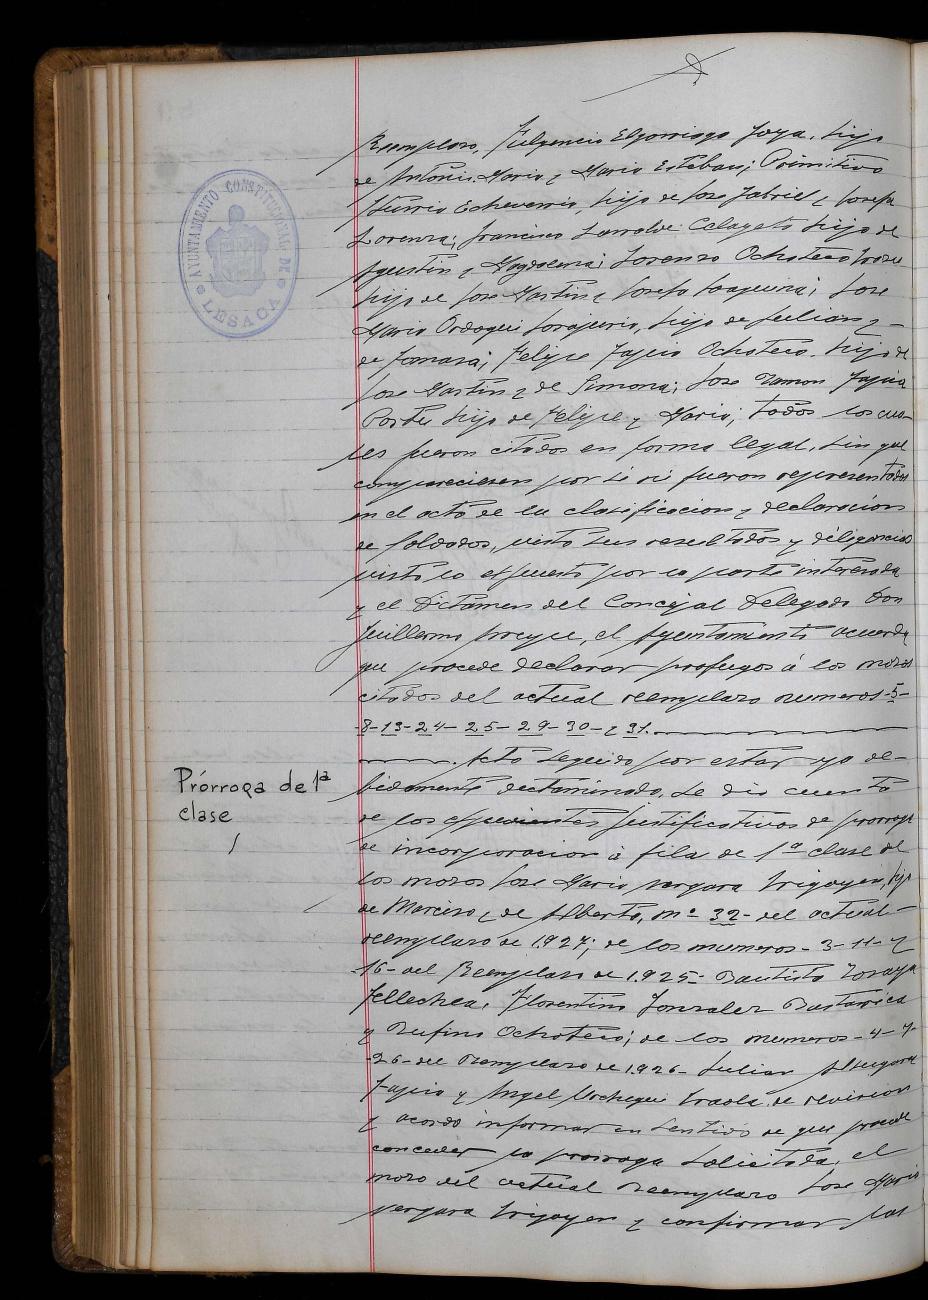 AYUNTAMIENTO CONSTITUCIONAL DE
LESACA
Reemplazo, Fulgencio Elgorriaga Goya, hijo
de Antonio Maria y Maria Esteban; Primitivo
Iturria Echeverria, hijo de Jose Gabriel y Josefa
Lorenza; Francisco Larralde Celayeta hijo de
Agustin y Magdalena; Lorenzo Ochoteco
hijo de Jose Martin y Josefa Joaquina; Jose
Maria Ordoqui, hijo de Julian y -
de Tomasa; Felipe Tapia Ochoteco. hijo de
Jose Martin y de Simona; Jose Ramon Tapia
hijo de Felipe y Maria; todos los cua-
les fueron citados en forma legal, sin que
compareciesen por si ni fueron representados
en el acto de la clasificacion y declaracion
de soldados, visto sus resultados y diligencias
visto lo expuesto por la parte interesada
y el Dictamen del Concejal Delegado Don
Guillermo, el Ayuntamiento acuerda
que procede declarar profugos á los mozos
citados del actual reemplazo numeros -5-
-8-13-24-25-29-30- y 31.
Acto seguido por estar ya de-
bidamente dictaminado, se dio cuenta
de los expedientes justificativos de prorroga
Prórroga de 1ª
clase
de incorporacion á fila de 1ª clase de
los mozos Jose Maria Vergara Irigoyen, hijo
de Narciso y de Alberta, nº 32- del actual -
reemplazo de 1.927; de los numeros - 3-11- y
16- del Reemplazo de 1.925- Bautista
Tellechea, Florentino Gonzalez
y Rufino Ochoteco; de los numeros - 4-7-
-26- del Reemplazo de 1.926- Julian
Tapia y Angel de revision
y acordo informar en sentido de que procede
conceder la prorroga solicitada, el
mozo del actual Reemplazo Jose Maria
Vergara Irigoyen y confirmar las